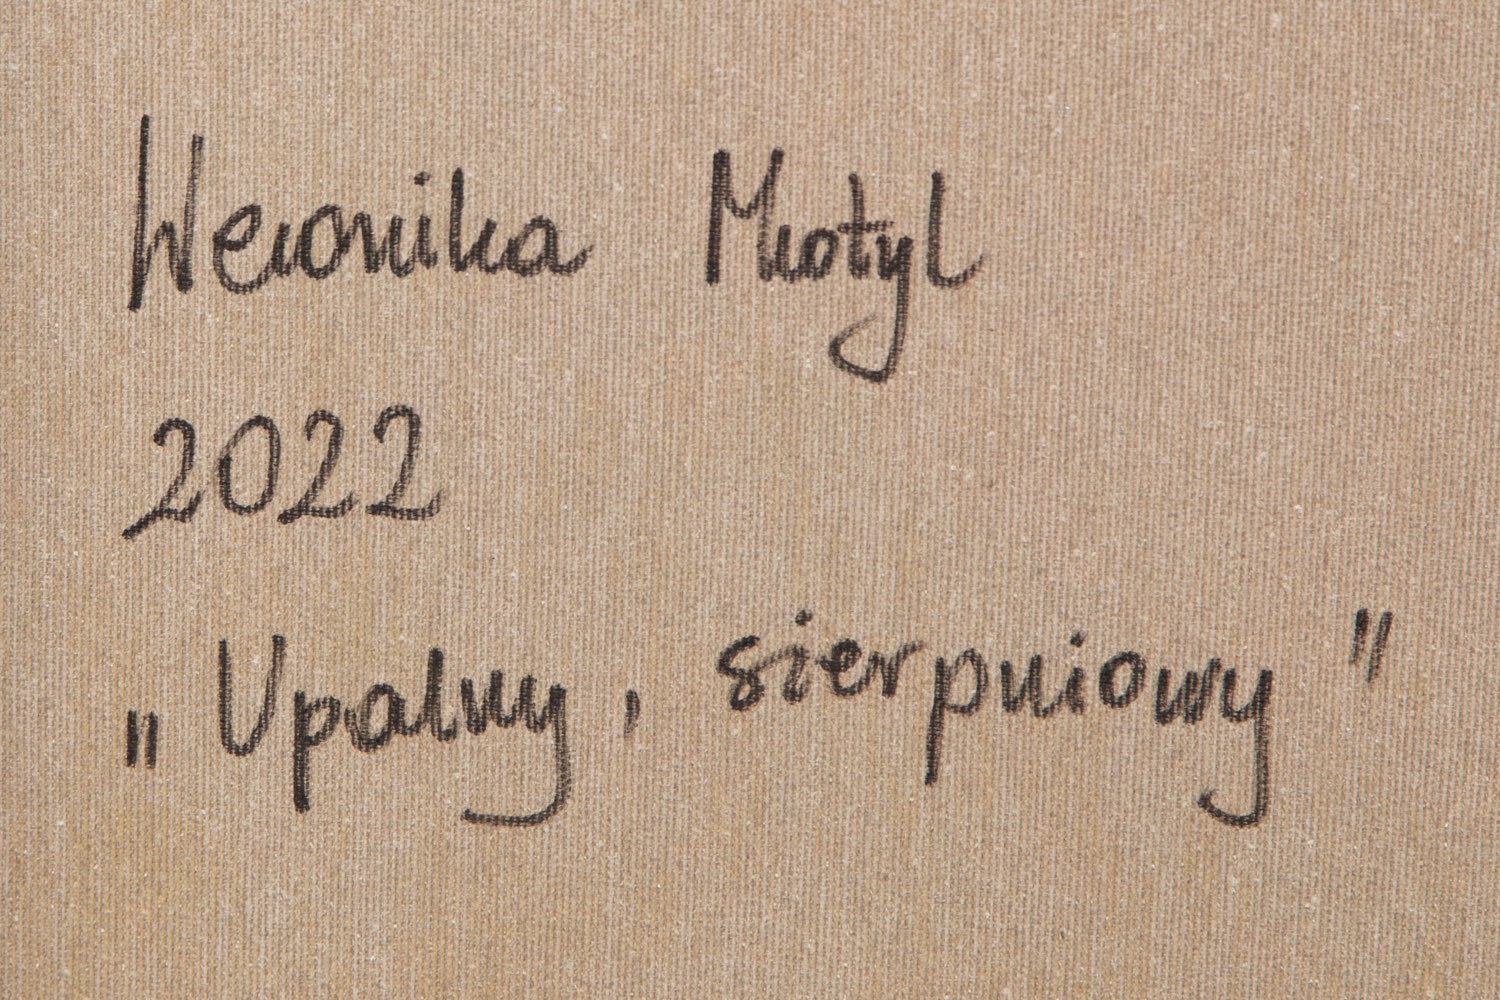 Weronika Mrotyl
2022
„Upalny, sierpniowy"